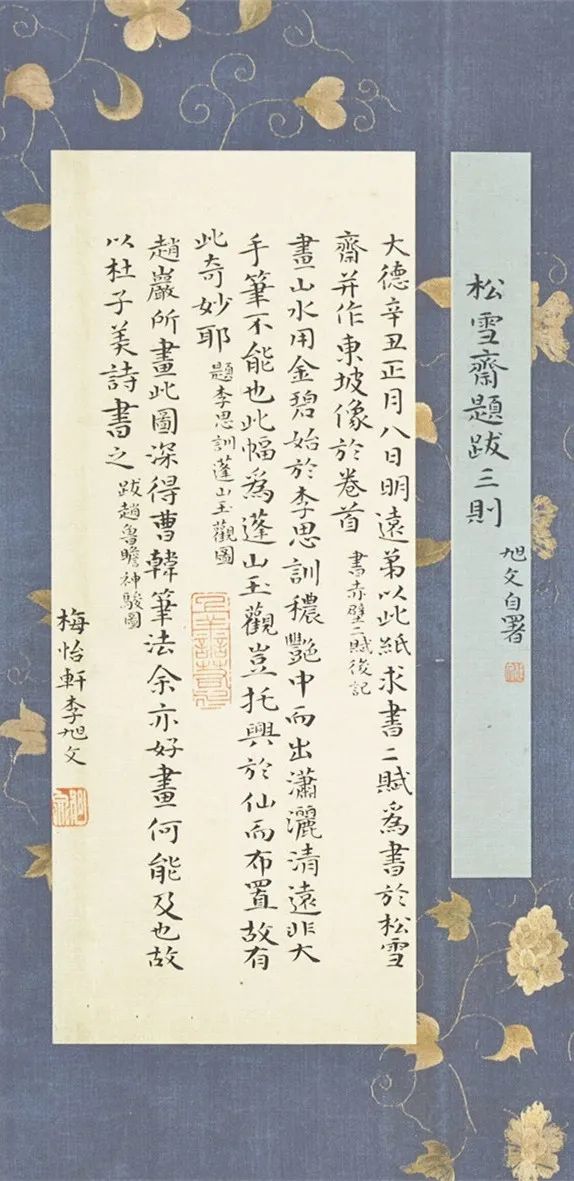 松雪齋題跋三則
旭文自署
大德辛丑正月八日明遠弟以此紙求書二賦爲書於松雪
齋并作東坡像於卷首 書赤壁二賦後記
畫山水用金碧始於李思訓穠艷中而出瀟灑清遠非大
手筆不能也此幅爲蓬山玉觀豈托興於仙而布置故有
此奇妙耶 題李思訓蓬山玉觀圖
趙巖所畫此圖深得曹韓筆法余亦好畫何能及也故
以杜子美詩書之 跋趙魯瞻神駿圖
梅怡軒李旭文